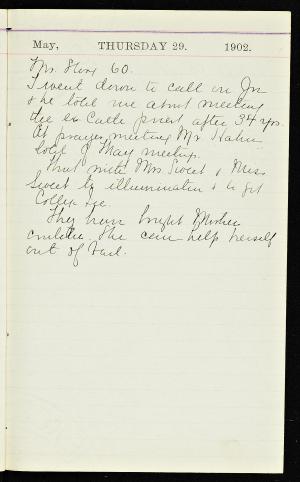 May, THURSDAY 29. 1902.
Mrs. 60.
I went down to call on Jr
& he told me about meeting
the ex Cath priest after 34 yrs.
At prayer meeting Mr. Hahn
told of May meeting.
Went with Mrs Sweet & Miss
Sweet to illumination & to get
Ice.
They have bought Mother
she can help herself
out of bed.